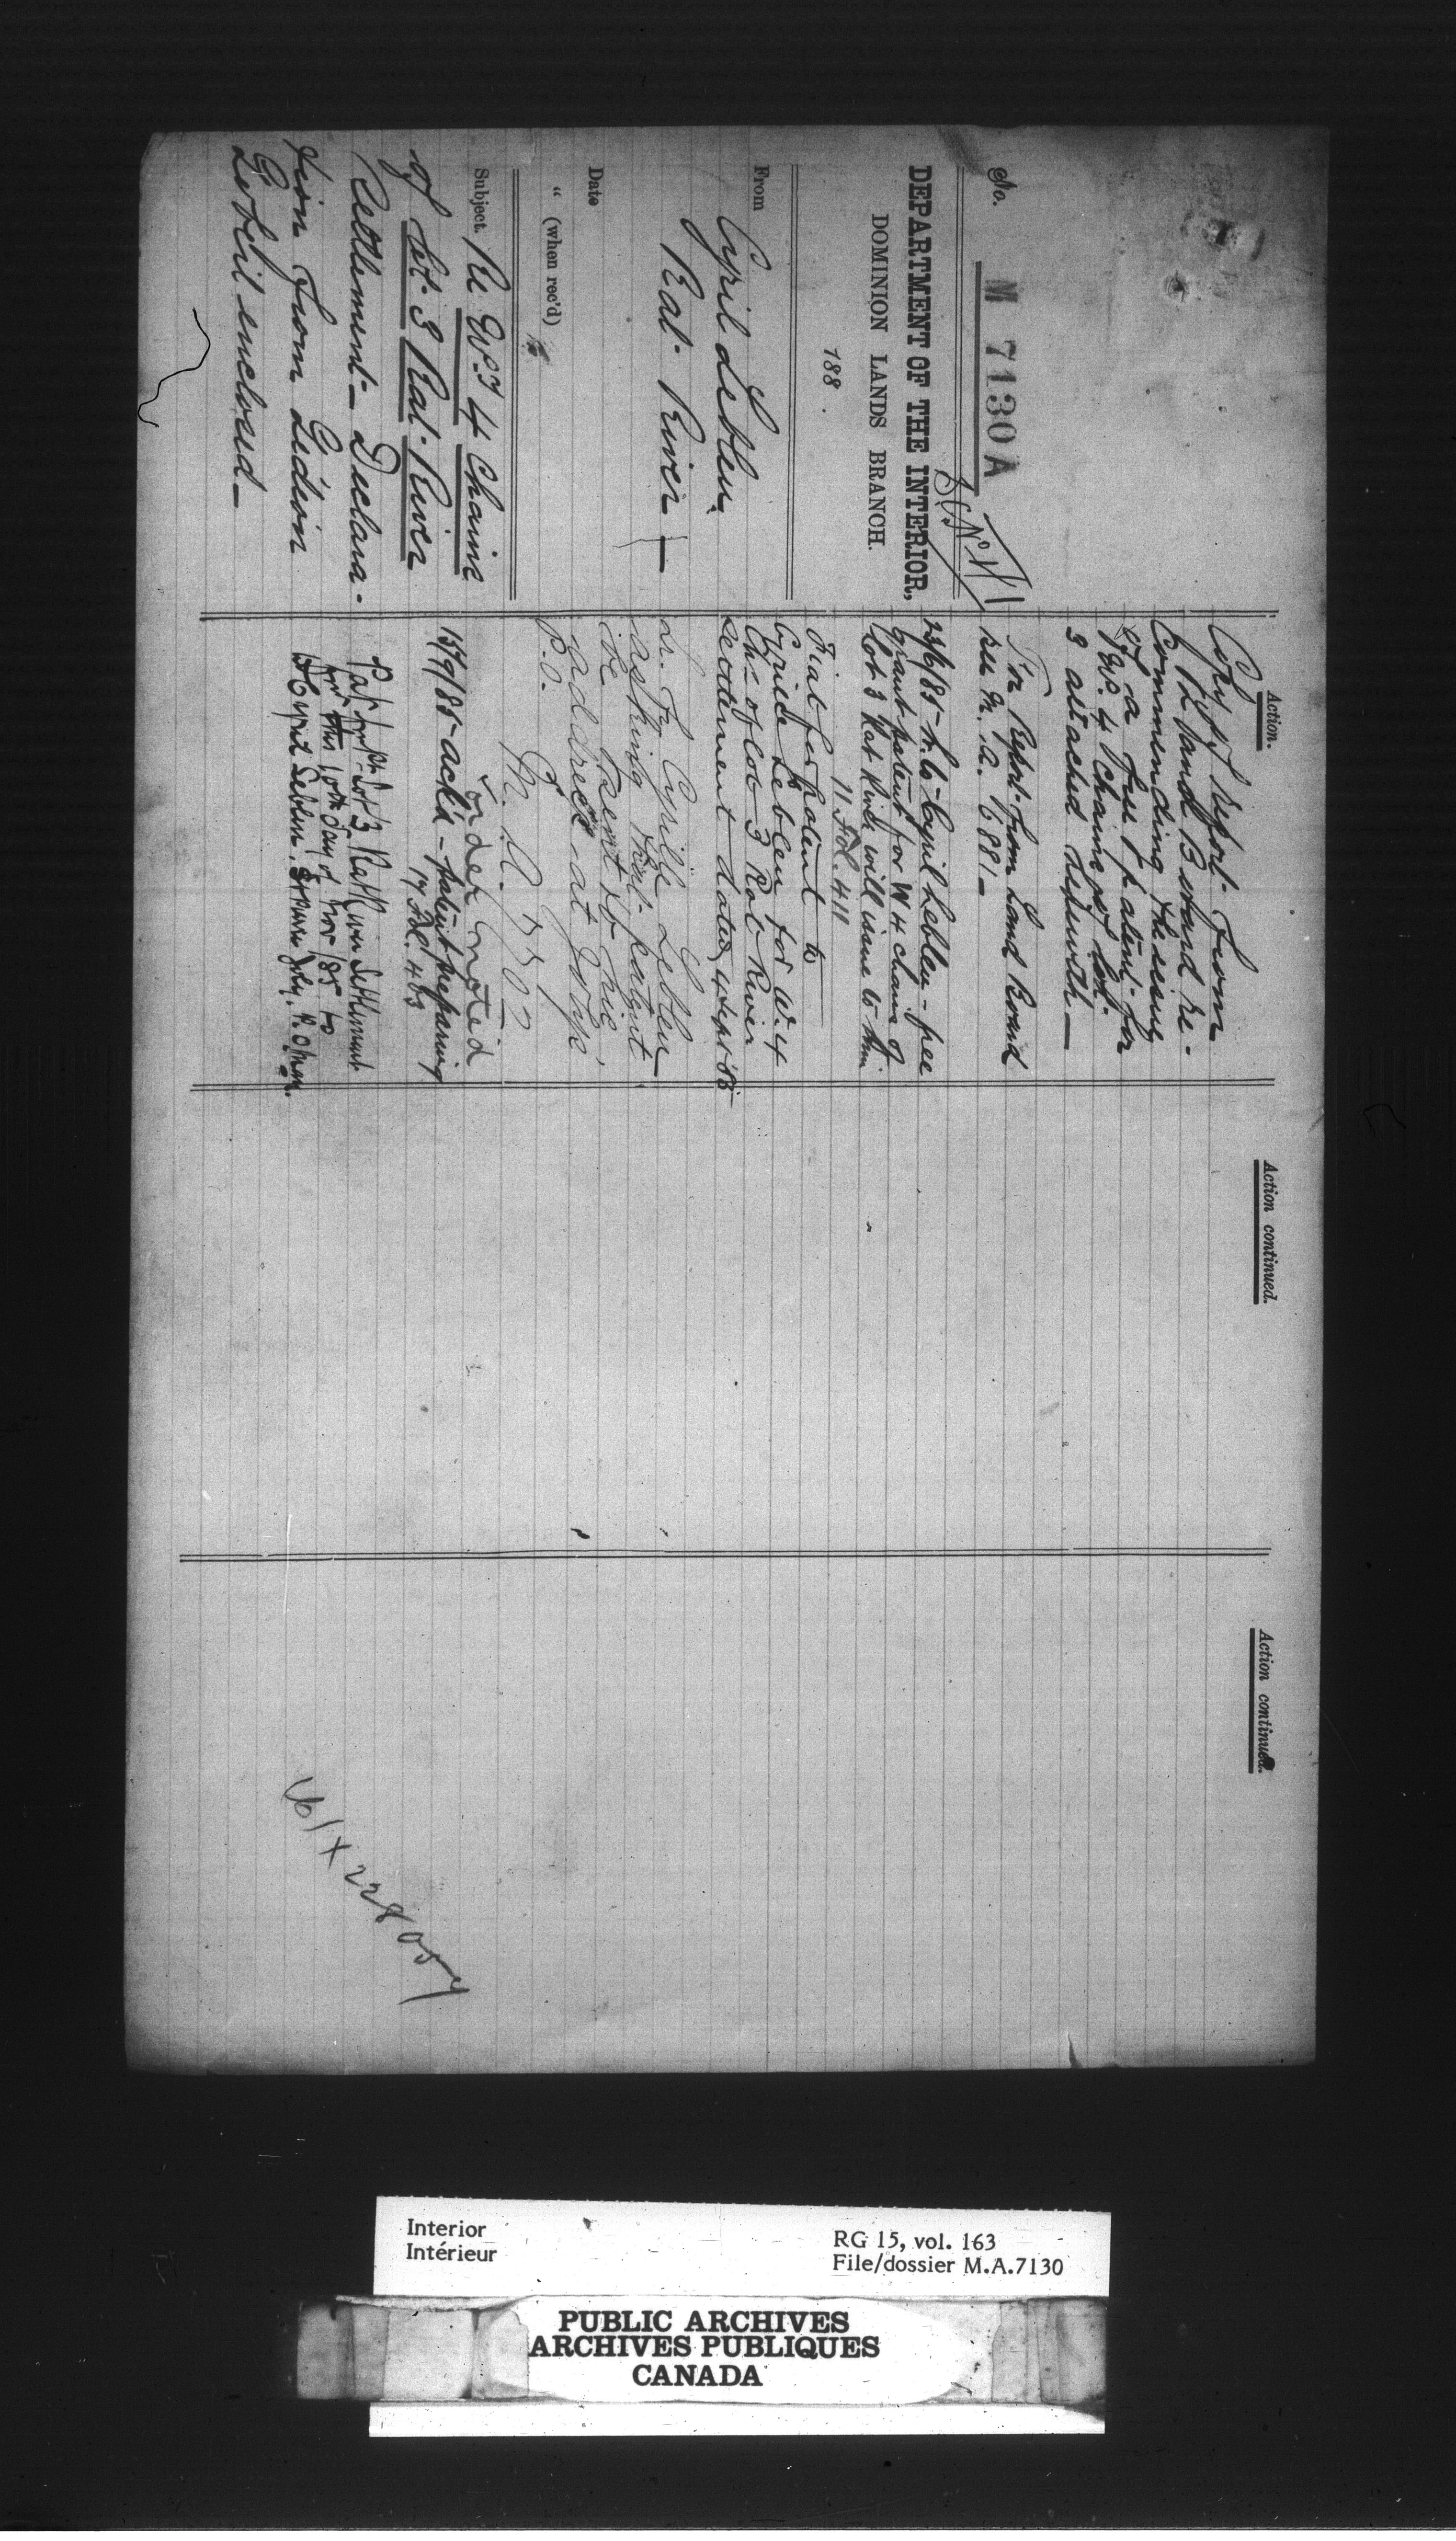 No. M 7130 A
B (No 1)
DEPARTMENT OF THE INTERIOR,
DOMINION LANDS BRANCH.
188 .
From Cyril Lebleu,
Rat River —
Date
" (when rec'd)
Subject. Re W.ly 4 Chains
of Lot 3 Rat River
Settlement — Declara-
tion from Gédéon
enclosed —
Action.
Copy of report from
Land Board re-
commending the issue
of a free patent for
W. 4 Chains of Lot
3 attached herewith —
For Report from Land Board
see M. A. 6881 —
23/6/85 - to Cyril Lebleu - free
grant patent for W 4 chains of
lot 3 Rat River will issue to him
11 Fol. 411
Fiat for patent to
Cyrille Lebleu for W. 4
Chs of lot 3 Rat River
settlement dated 4 Sept 85
Lr. Fr. Cyrille Lebleu
asking that patent
be sent to his
address at
P.O.
under noted
15/9/85 - ackd - patent preparing
17 Fol. 463
Pat for pt. Lot 3 Rat River Settlement
this 10th day of Nov /85 to
Cyril Lebleu,
Action continued.
Action continued.
Interior
Intérieur
RG 15, vol. 163
File/dossier M.A.7130
PUBLIC ARCHIVES
ARCHIVES PUBLIQUES
CANADA